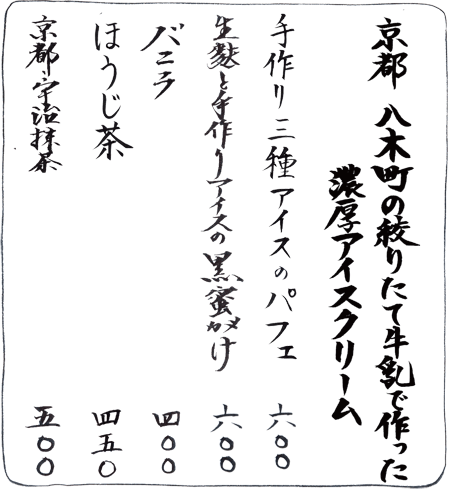 京都 八木町の絞りたて牛乳で作った
濃厚アイスクリーム
手作り三種アイスのパフェ 六〇〇
生麩と手作りアイスの黒蜜がけ 六〇〇
バニラ 四〇〇
ほうじ茶 四五〇
京都宇治抹茶 五〇〇